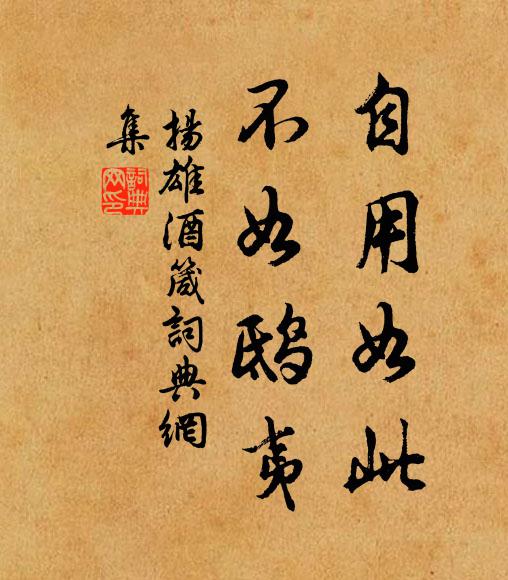 自用如此
不如鸱夷
揚雄酒箴詞典網
集
詞典
网印